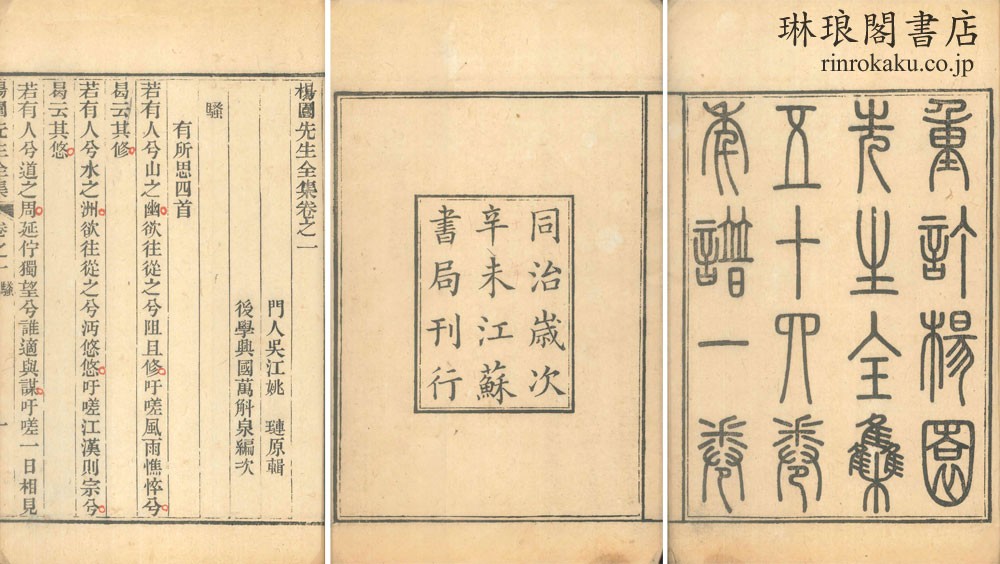 琳琅閣書店
rinrokaku.co.jp
重訂楊園
先生全雧
五十四卷
年譜一卷
同治歲次
辛未江蘇
書局刊行
楊園先生全集卷之一
門人吳江姚　璉原輯
後學興國萬斛泉編次
騷
有所思四首
若有人兮山之幽欲往從之兮阻且修吁嗟風雨憔悴兮
曷云其修
若有人兮水之洲欲往從之兮沔悠悠吁嗟江漢則宗兮
曷云其悠
若有人兮道之周延佇獨望兮誰適與謀吁嗟一日相見
楊園先生全集　卷之一　騷　一